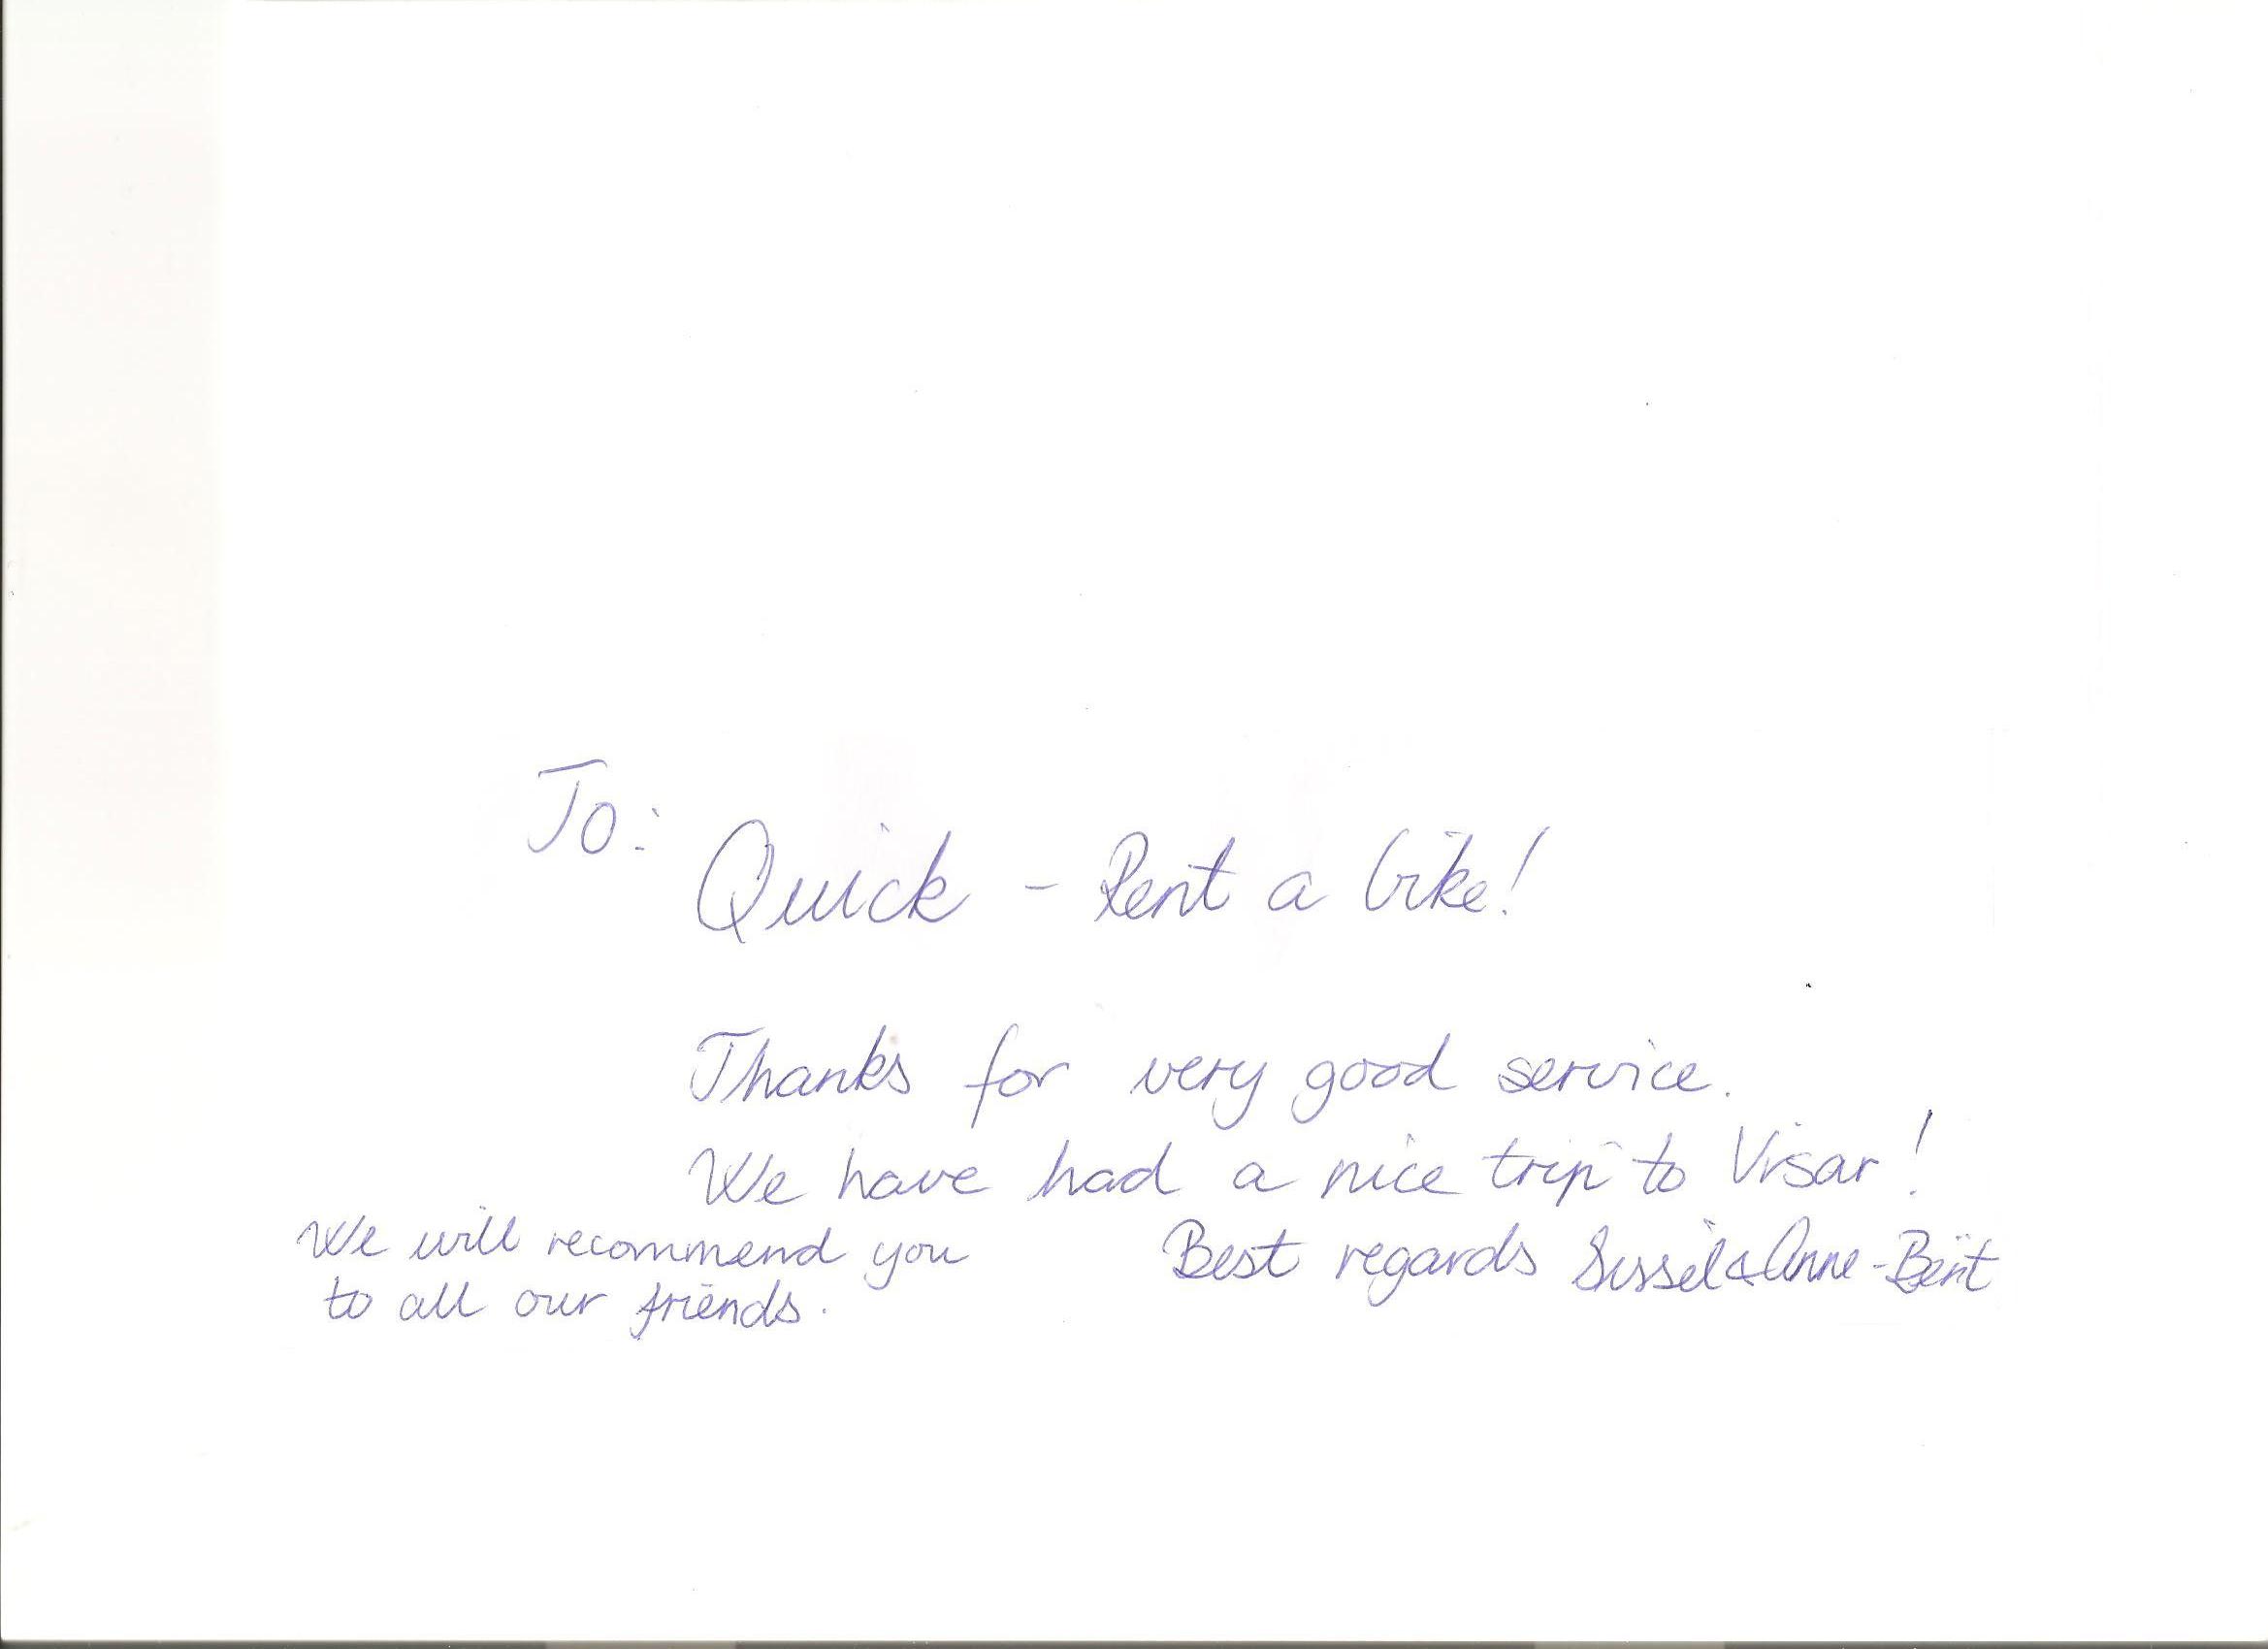 To:
Quick - Rent a bike!
Thanks for very good service.
We have had a nice trip to Visar!
We will recommend you
to all our friends.
Best regards Sissel & Anne-Berit